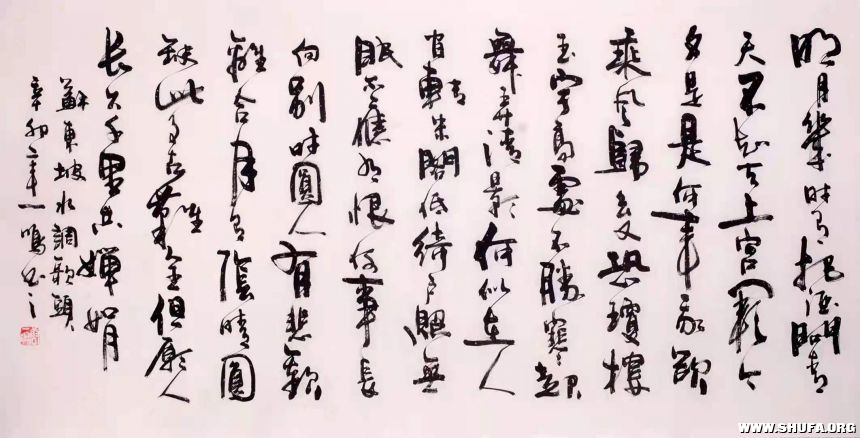 明月幾時有把酒問青
天不知天上宮闕今
夕是是何年我欲
乘风歸去又恐瓊樓
玉宇高處不勝寒起
舞弄清影何似在人
間轉朱閣低綺戶照無
眠不應有恨何事長
向別時圓人有悲歡
離合月有陰晴圓
缺此事古難全但願人
长久千里共嬋娟
蘇東坡水調歌頭
辛卯年一鳴书之
WWW.SHUFA.ORG